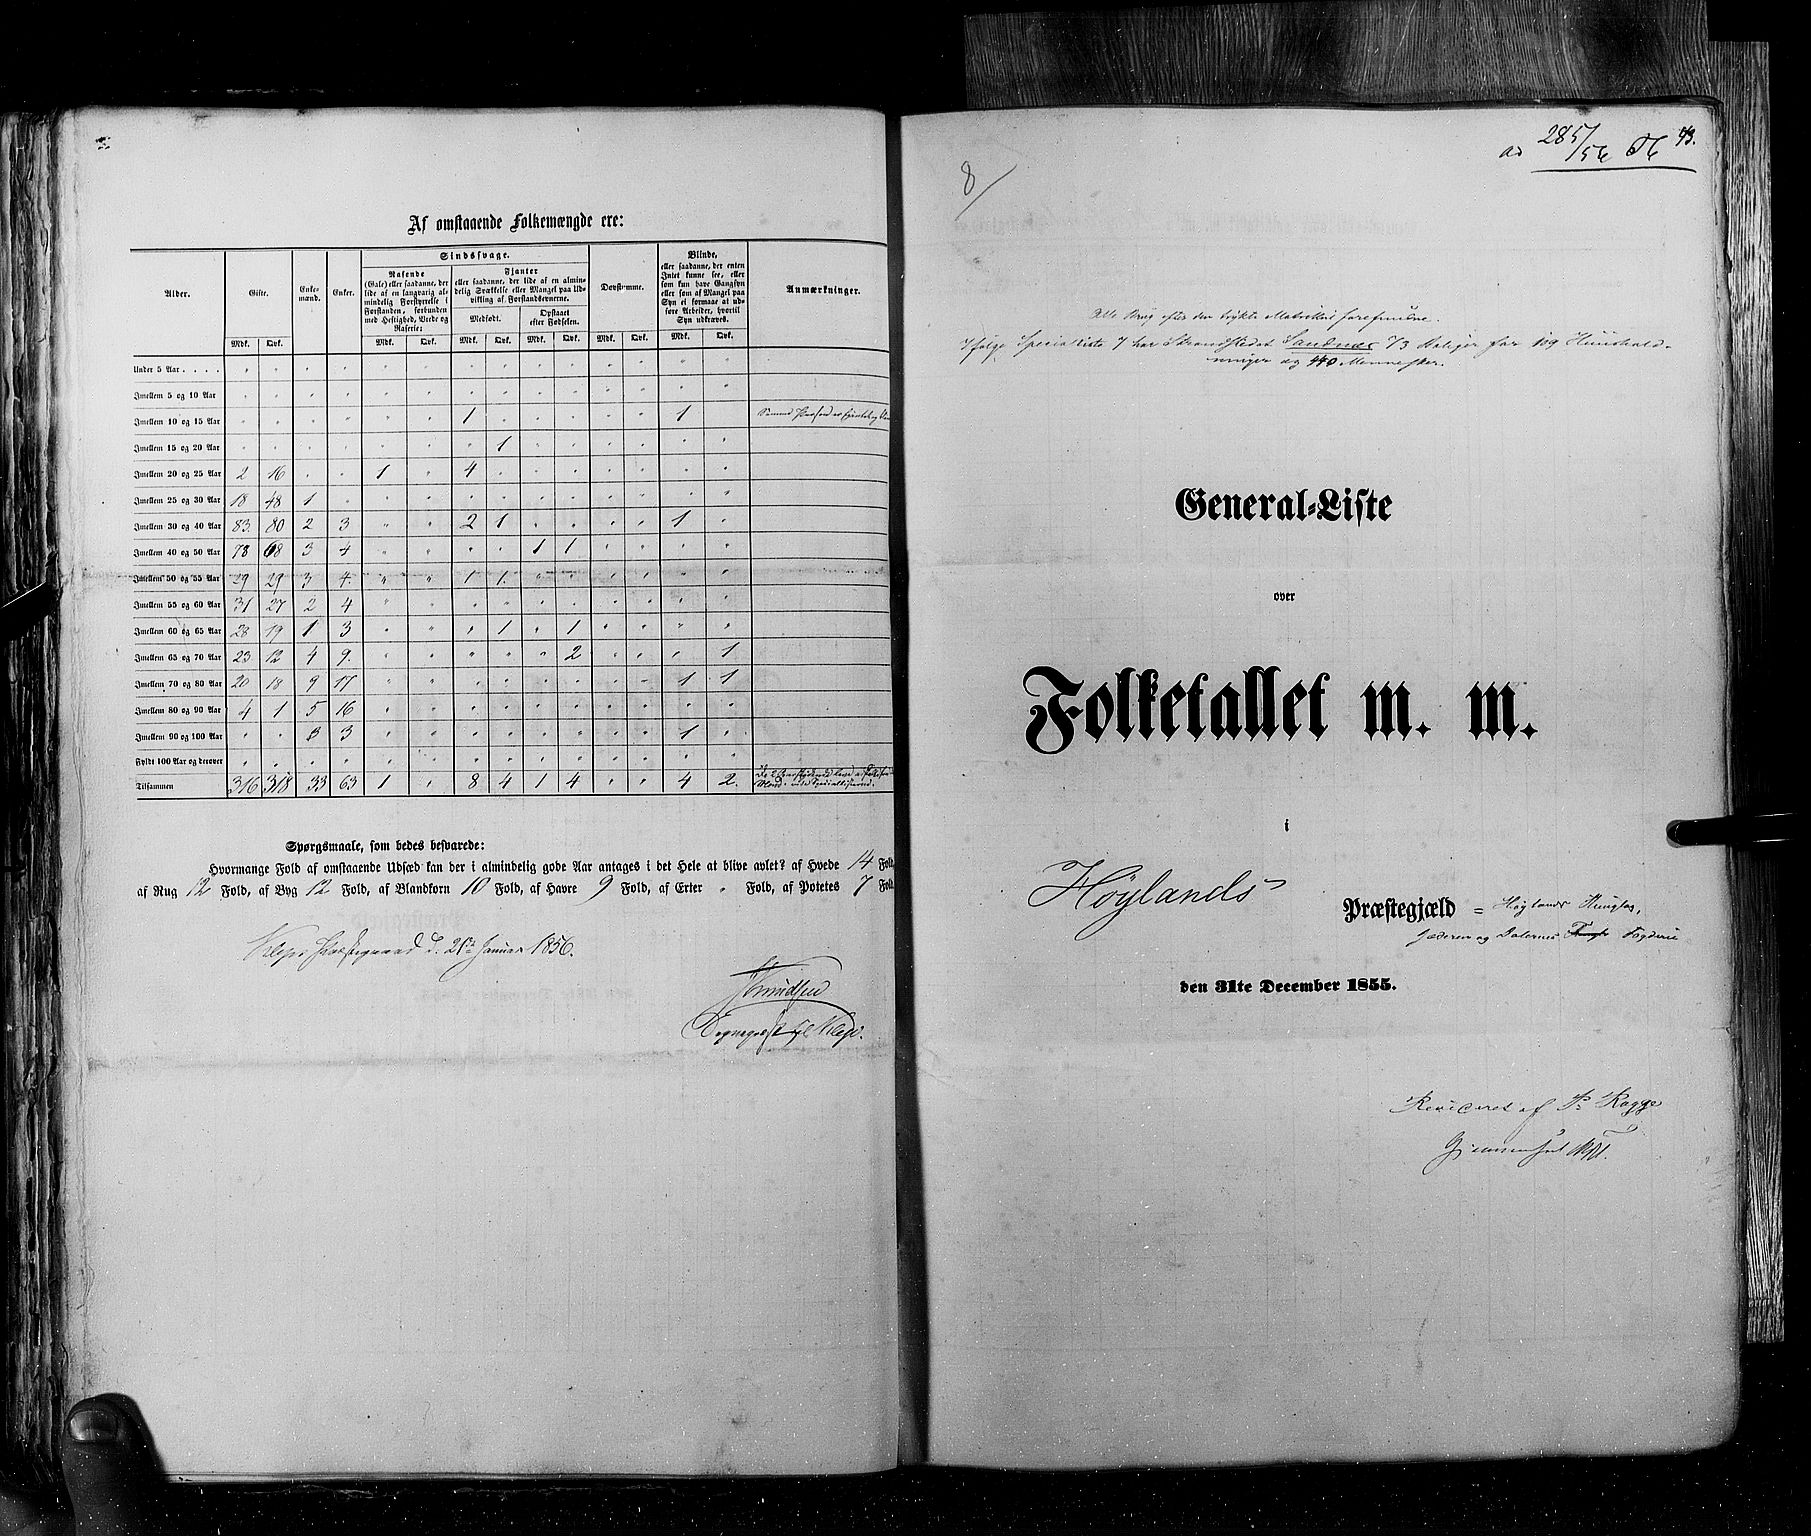 Af omstaaende Folkemængde ere:
Alder. Gifte. Enkemænd. Enker. Sindssvage. Døvstumme. Blinde, eller saadanne, der enten Intet kunne see, eller som kun have Gangsyn eller som af Mangel paa Syn ei formaae at udføre Arbeider, hvortil Syn udkræves. Anmærkninger.
Rasende (Gale) eller saadanne, der lide af en langvarig almindelig Forstyrrelse i Forstanden, forbunden med Heftighed, Vrede og Raserie:
Fjanter eller saadanne, der lide af en almindelig Svækkelse eller Mangel paa Udvikling af Forstandsevnerne.
Medfødt. Opstaaet efter Fødselen.
Mdk. Qvk. Mdk. Qvk. Mdk. Qvk. Mdk. Qvk. Mdk. Qvk. Mdk. Qvk.
Under 5 Aar . . . .
Imellem 5 og 10 Aar
Imellem 10 og 15 Aar 1 1 Samme Person er
Imellem 15 og 20 Aar 1
Imellem 20 og 25 Aar 2 16 1 4
Imellem 25 og 30 Aar 18 48 1
Imellem 30 og 40 Aar 83. 80 2 3 2 1 1
Imellem 40 og 50 Aar 78 68 3 4 1 1
Imellem 50 og 55 Aar 29 29 3 4. 1 1.
Imellem 55 og 60 Aar 31 27 2 4
Imellem 60 og 65 Aar 28 19 1 3 1 1
Imellem 65 og 70 Aar 23 12 4 9. 2 1
Imellem 70 og 80 Aar 20 18 9 17 1 1
Imellem 80 og 90 Aar 4 1 5 16
Imellem 90 og 100 Aar 3 3 1
Fyldt 100 Aar og derover
Tilsammen 316 318 33 63 1 8 4 1 4 4 2.
Spørgsmaale, som bedes besvarede:
Hvormange Fold af omstaaende Udsæd kan der i almindelig gode Aar antages i det Hele at blive avlet? af Hvede 14 Fold,
af Rug 12 Fold, af Byg 12 Fold, af Blandkorn 10 Fold, af Havre 9 Fold, af Erter " Fold, af Potetes 7 Fold.
Kleps Præstegaard d. 21de Januar 1856.
Knudsen
Sognepræst til Klep.
ad 285/56 43.
8/
Alle Brug efter den trykte Matrikul forefundne.
Ifølge Specialliste 7 har Strandstedet Sandnæs 73 Boliger for 109 Huushold-
ninger og 440 Mennesker.
General-Liste
over
Folketallet m. m.
i
Høylands Præstegjæld = Høylands Thinglag,
Jæderen og Dalernes Fogderie
den 31te December 1855.
Revideret af P. Rogge